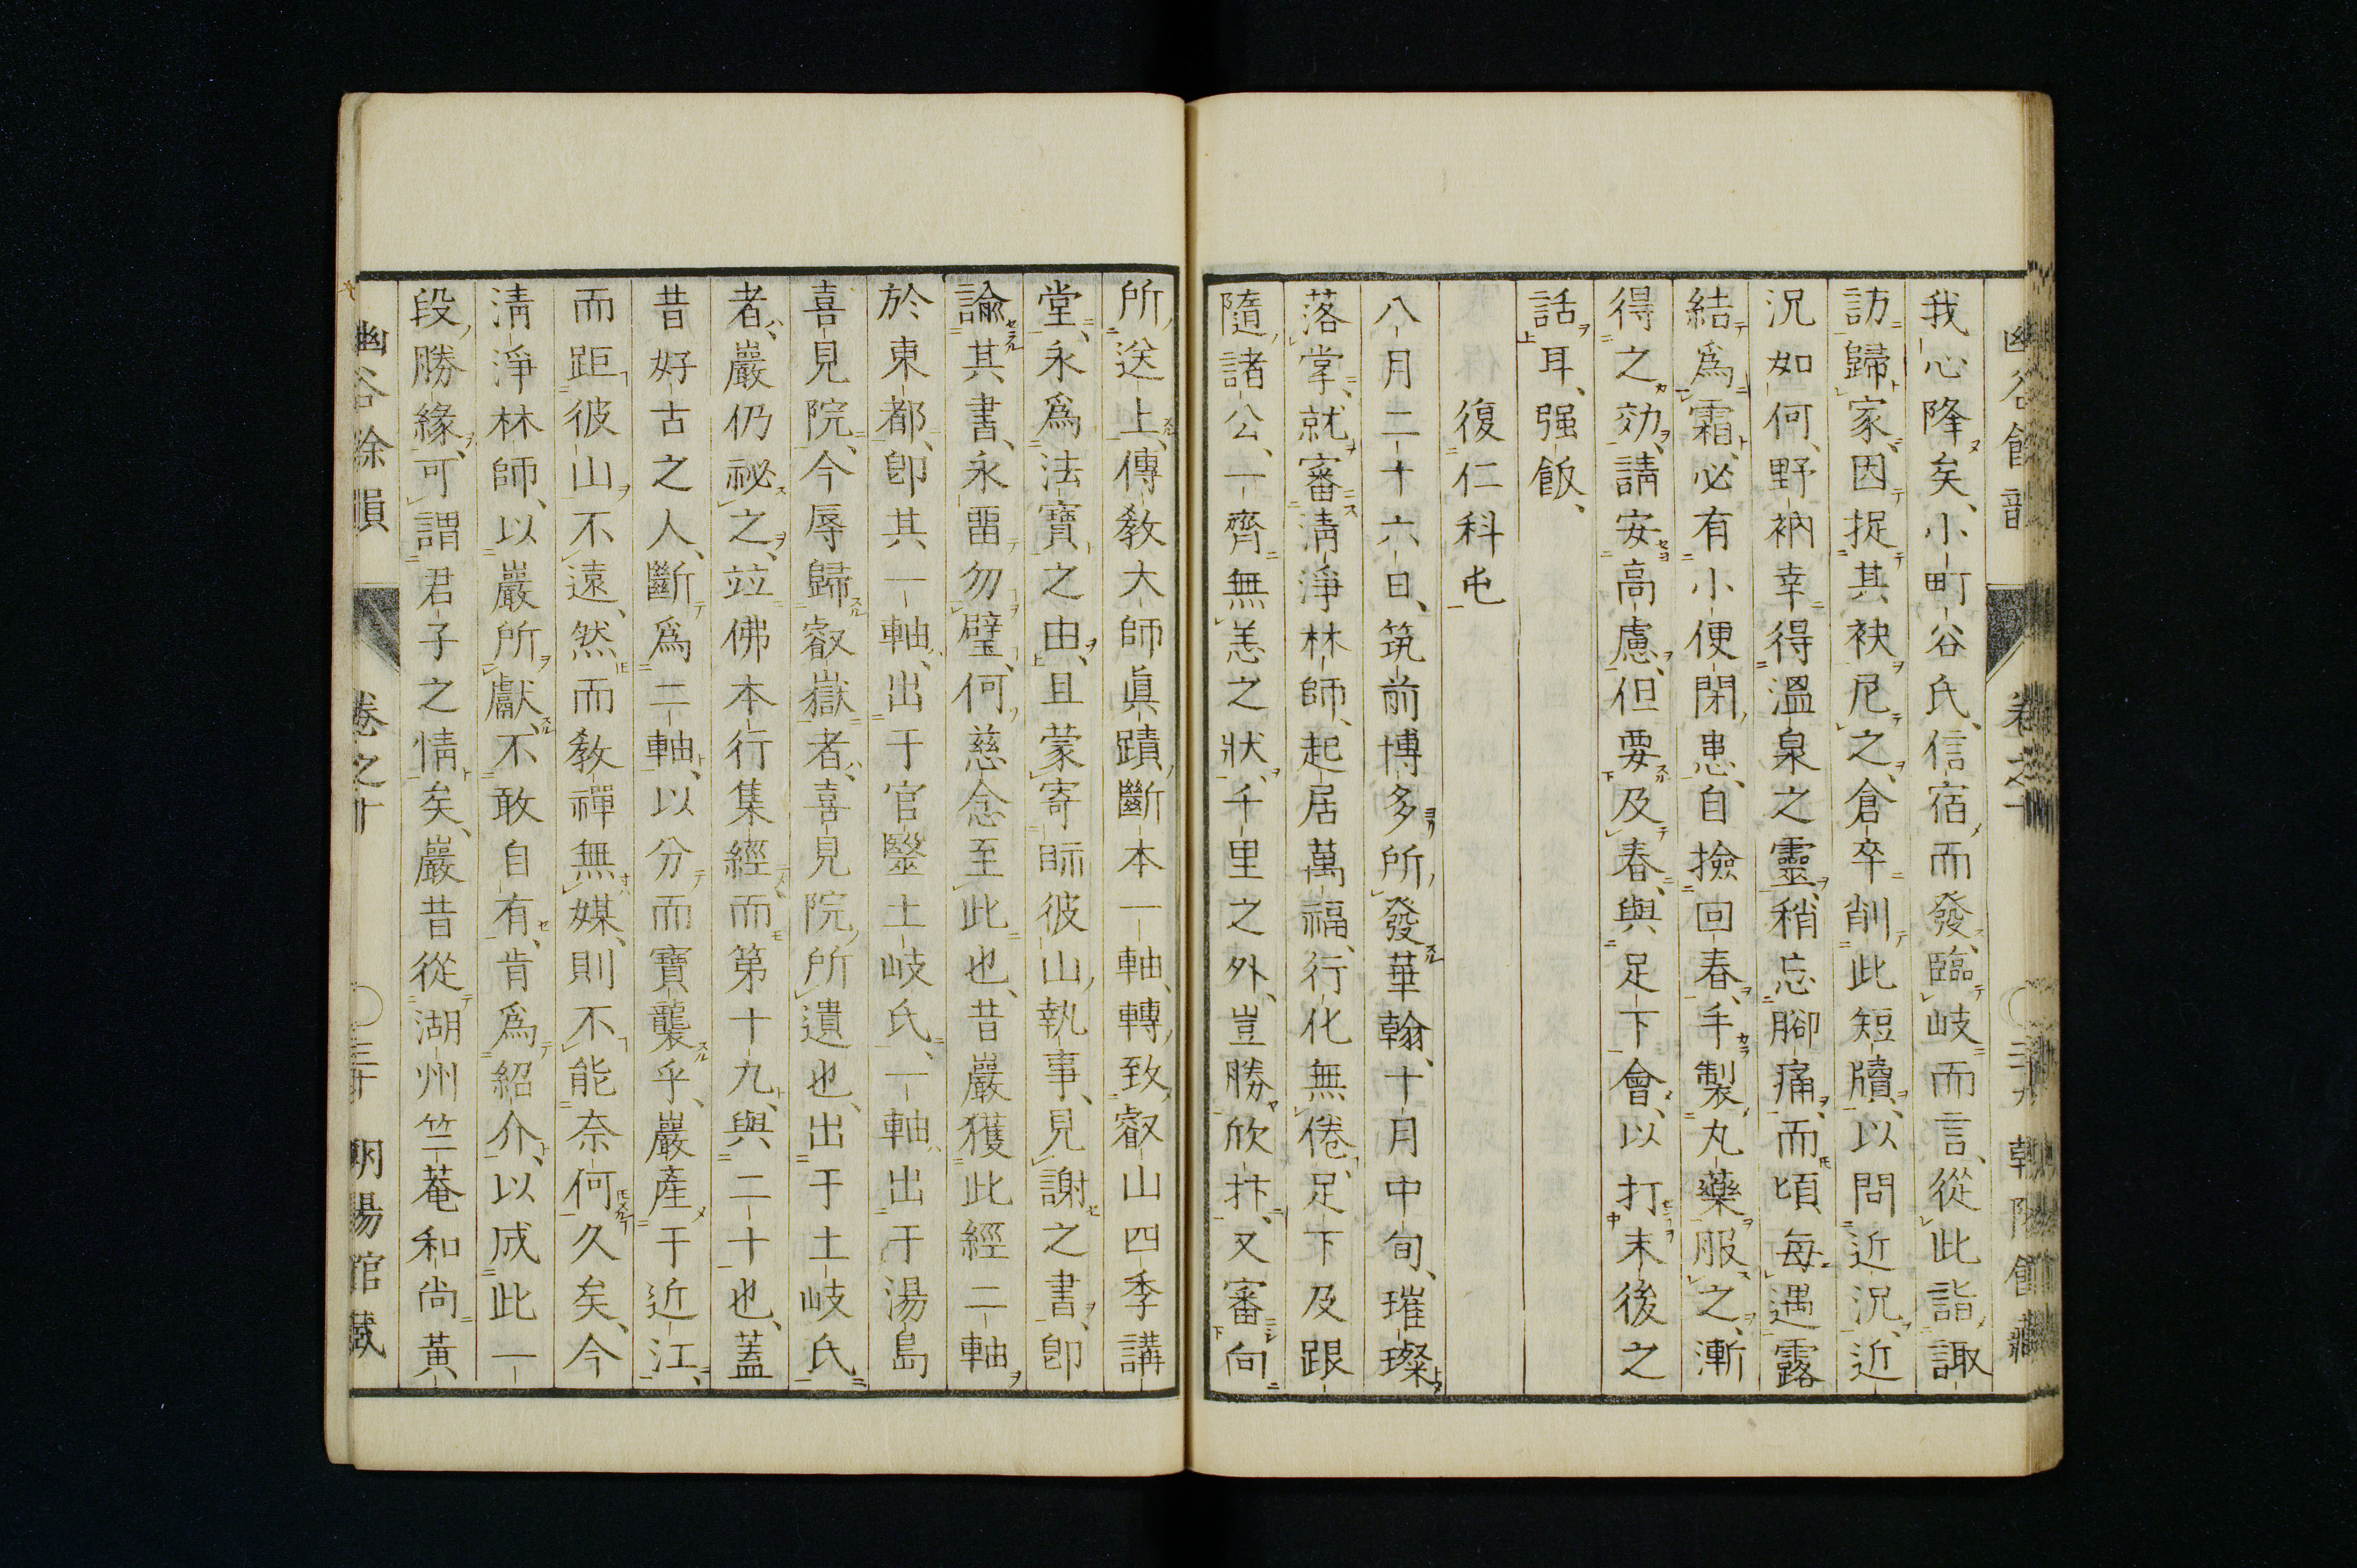 我心降矣、小町谷氏、信宿而發、臨岐而言、從此詣諏
訪歸家、因捉其袂尼之、倉卒削此短牘、以問近況、近
況如何、野衲幸得溫泉之靈、稍忘腳痛、而頃每遇露
結爲霜、必有小便閉患、自撿回春、手製丸藥服之、漸
得之効、請安高慮、但要及春、與足下會、以打末後之
話耳、强飯、
復仁科屯
八月二十六日、筑前博多所發華翰、十月中旬、璀璨
落掌、就審淸淨林師、起居萬福、行化無倦、足下及跟
隨諸公、一齊無恙之狀、千里之外、豈勝欣抃、又審向
所送上、傳敎大師眞蹟斷本一軸、轉致叡山四季講
堂、永爲法寶之由、且蒙寄眎彼山執事、見謝之書、卽
諭其書、永畱勿璧、何慈念至此也、昔嚴獲此經二軸
於東都、卽其一軸、出于官毉土岐氏、一軸出于湯島
喜見院、今辱歸叡嶽者、喜見院所遺也、出于土岐氏
者、嚴仍祕之、竝佛本行集經而第十九、與二十也、蓋
昔好古之人、斷爲二軸、以分而寶襲乎、嚴產于近江、
而距彼山不遠、然而敎禪無媒、則不能奈何久矣、今
淸淨林師、以嚴所獻、不敢自有、肯爲紹介、以成此一
段勝緣、可謂君子之情矣、嚴昔從湖州竺菴和尙黃
幽谷餘韻 卷之十 三十 明陽館藏